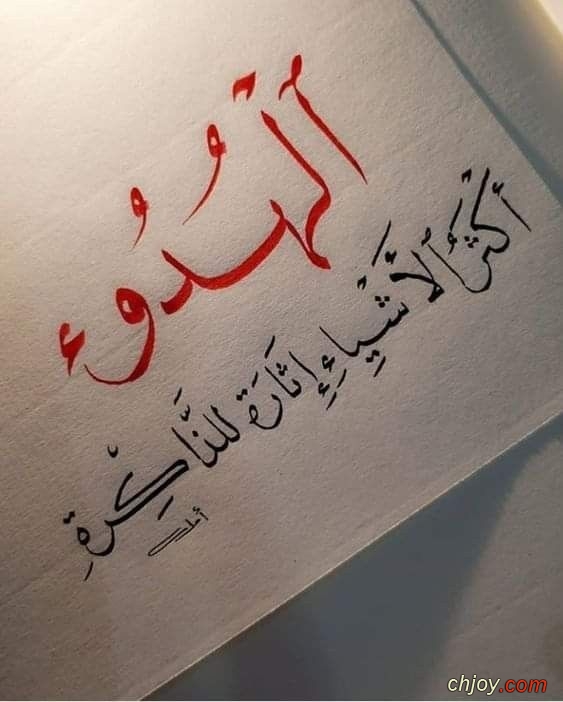 اَلْهُدُوء
أكْثَرُ اُلأَشْيَاءِ إثَارَة للذَّاكِرَةِ
chjoy.com